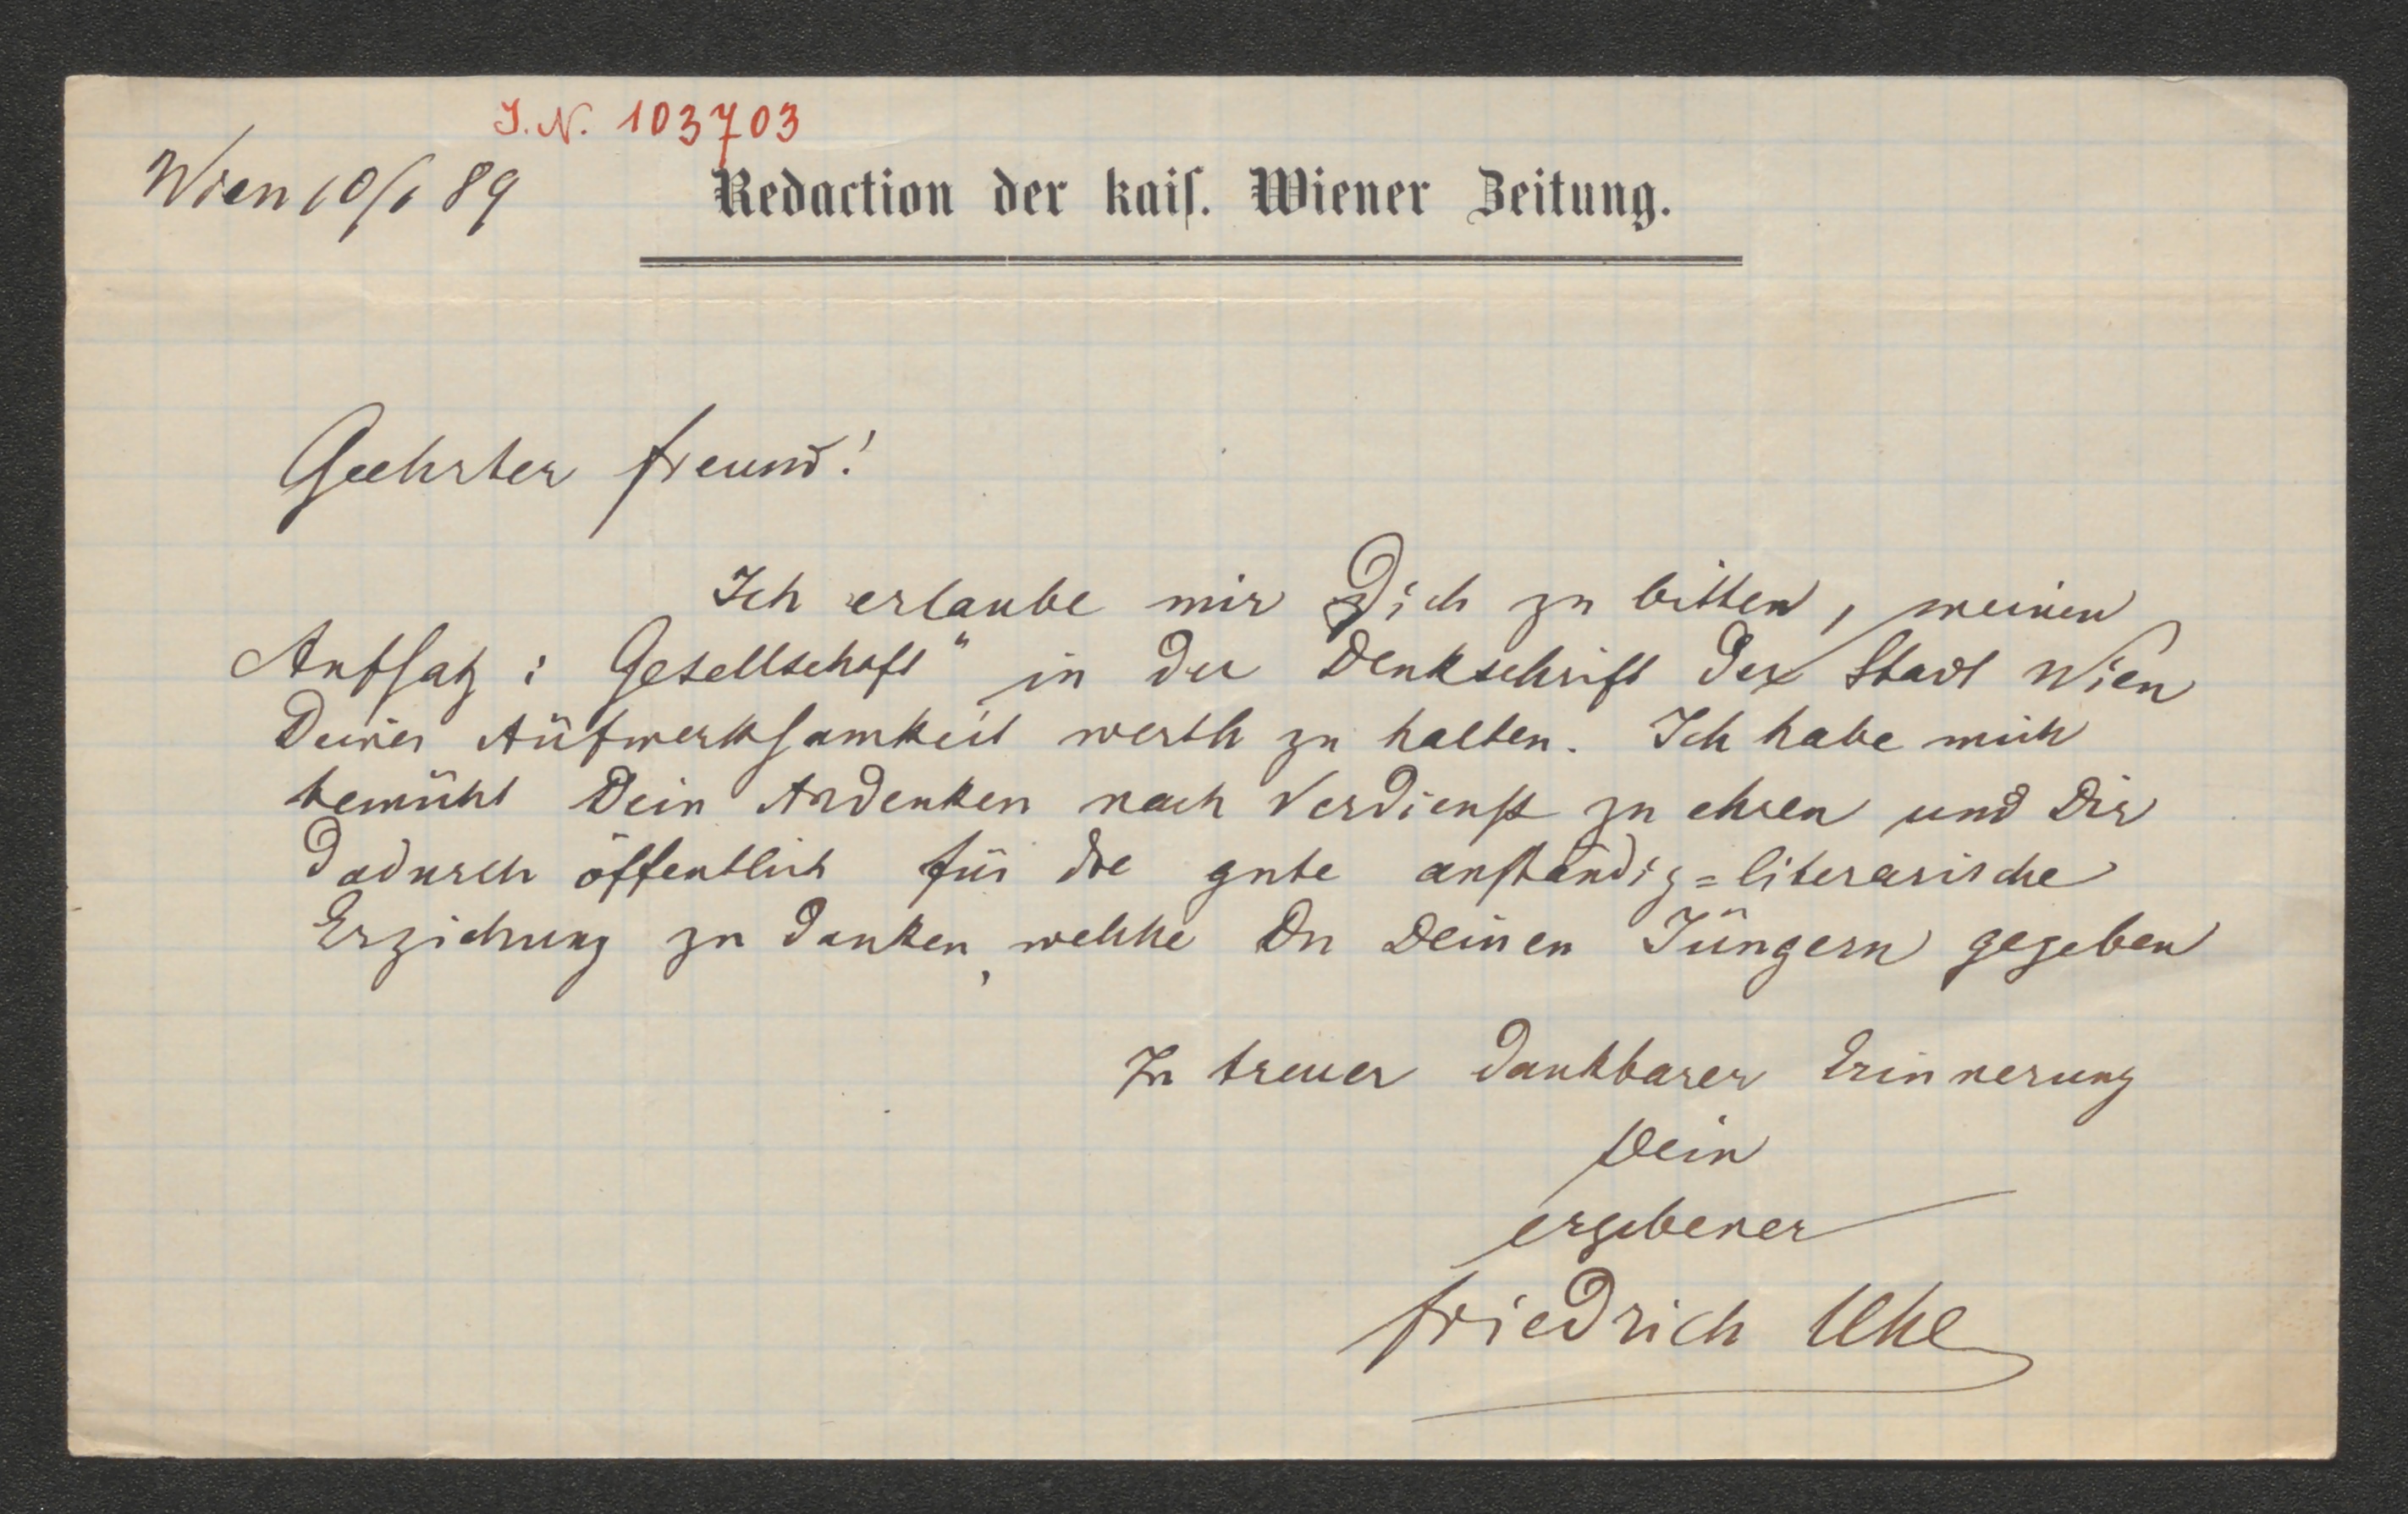 J. N. 103703
Wien 10/1 89
Redaction der kaiſ. Wiener Zeitung.
Geehrter Freund!
Ich erlaube mir Dich zu bitten, meinen
Aufsatz: Gesellschaft" in der Denkschrift der Stadt Wien
Deiner Aufmerksamkeit werth zu halten. Ich habe mich
bemüht Dein Andenken nach Verdienst zu ehren und Dir
dadurch öffentlich für die gute anständig=literarische
Erziehung zu danken, welche Du Deinen Jüngern gegeben
In treuer dankbarer Erinnerung
Dein
ergebener
Friedrich Uhl